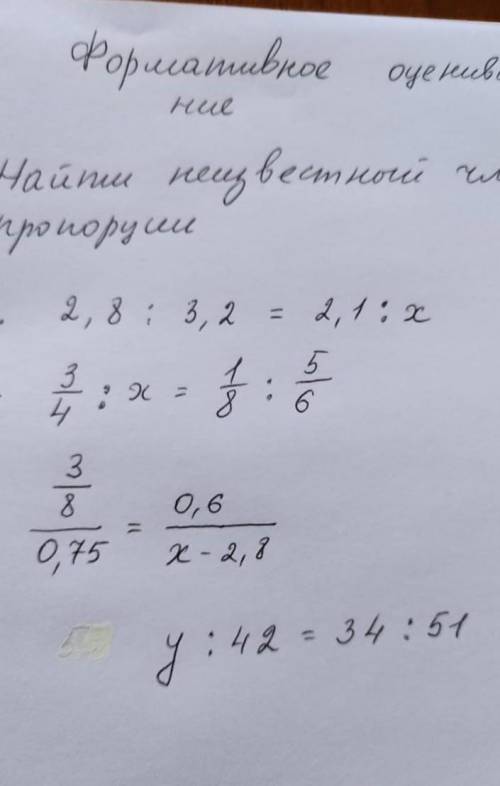 Формативное оценива
ние
Найти неизвестный чл
пропорции
2,8 : 3,2 = 2,1 : x
3/4 : x = 1/8 : 5/6
3/8 / 0,75 = 0,6 / x - 2,8
y : 42 = 34 : 51